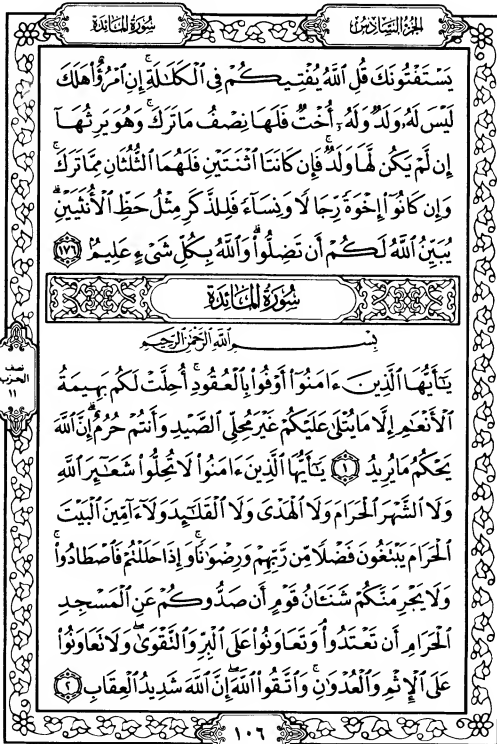 الجزء السادس
سورة المائدة
يَسۡتَفۡتُونَكَ قُلِ ٱللَّهُ يُفۡتِيكُمۡ فِي ٱلۡكَلَٰلَةِۚ إِنِ ٱمۡرُؤٌاْ هَلَكَ
لَيۡسَ لَهُۥ وَلَدٞ وَلَهُۥٓ أُخۡتٞ فَلَهَا نِصۡفُ مَا تَرَكَۚ وَهُوَ يَرِثُهَآ
إِن لَّمۡ يَكُن لَّهَا وَلَدٞۚ فَإِن كَانَتَا ٱثۡنَتَيۡنِ فَلَهُمَا ٱلثُّلُثَانِ مِمَّا تَرَكَۚ
وَإِن كَانُوٓاْ إِخۡوَةٗ رِّجَالٗا وَنِسَآءٗ فَلِلذَّكَرِ مِثۡلُ حَظِّ ٱلۡأُنثَيَيۡنِۗ
يُبَيِّنُ ٱللَّهُ لَكُمۡ أَن تَضِلُّواْۗ وَٱللَّهُ بِكُلِّ شَيۡءٍ عَلِيمُۢ ١٧٦
سُورَةُ المَائدَة
بِسۡمِ ٱللَّهِ ٱلرَّحۡمَٰنِ ٱلرَّحِيمِ
يَٰٓأَيُّهَا ٱلَّذِينَ ءَامَنُوٓاْ أَوۡفُواْ بِٱلۡعُقُودِۚ أُحِلَّتۡ لَكُم بَهِيمَةُ
ٱلۡأَنۡعَٰمِ إِلَّا مَا يُتۡلَىٰ عَلَيۡكُمۡ غَيۡرَ مُحِلِّي ٱلصَّيۡدِ وَأَنتُمۡ حُرُمٌۗ إِنَّ ٱللَّهَ
يَحۡكُمُ مَا يُرِيدُ ١ يَٰٓأَيُّهَا ٱلَّذِينَ ءَامَنُواْ لَا تُحِلُّواْ شَعَٰٓئِرَ ٱللَّهِ
وَلَا ٱلشَّهۡرَ ٱلۡحَرَامَ وَلَا ٱلۡهَدۡيَ وَلَا ٱلۡقَلَٰٓئِدَ وَلَآ ءَآمِّينَ ٱلۡبَيۡتَ
ٱلۡحَرَامَ يَبۡتَغُونَ فَضۡلٗا مِّن رَّبِّهِمۡ وَرِضۡوَٰنٗاۚ وَإِذَا حَلَلۡتُمۡ فَٱصۡطَادُواْۚ
وَلَا يَجۡرِمَنَّكُمۡ شَنَـَٔانُ قَوۡمٍ أَن صَدُّوكُمۡ عَنِ ٱلۡمَسۡجِدِ
ٱلۡحَرَامِ أَن تَعۡتَدُواْۘ وَتَعَاوَنُواْ عَلَى ٱلۡبِرِّ وَٱلتَّقۡوَىٰۖ وَلَا تَعَاوَنُواْ
عَلَى ٱلۡإِثۡمِ وَٱلۡعُدۡوَٰنِۚ وَٱتَّقُواْ ٱللَّهَۖ إِنَّ ٱللَّهَ شَدِيدُ ٱلۡعِقَابِ ٢
نصف
الحزب
١١
١٠٦